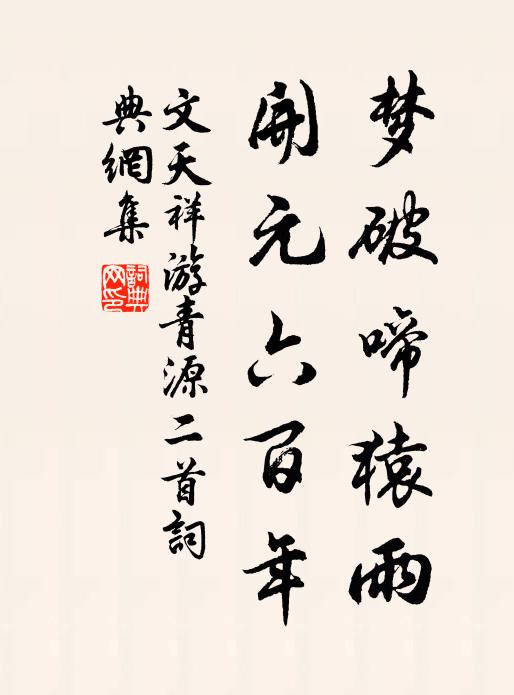 梦破啼猿雨
開元六百年
文天祥游青源二首詞
典網集
詞典网印